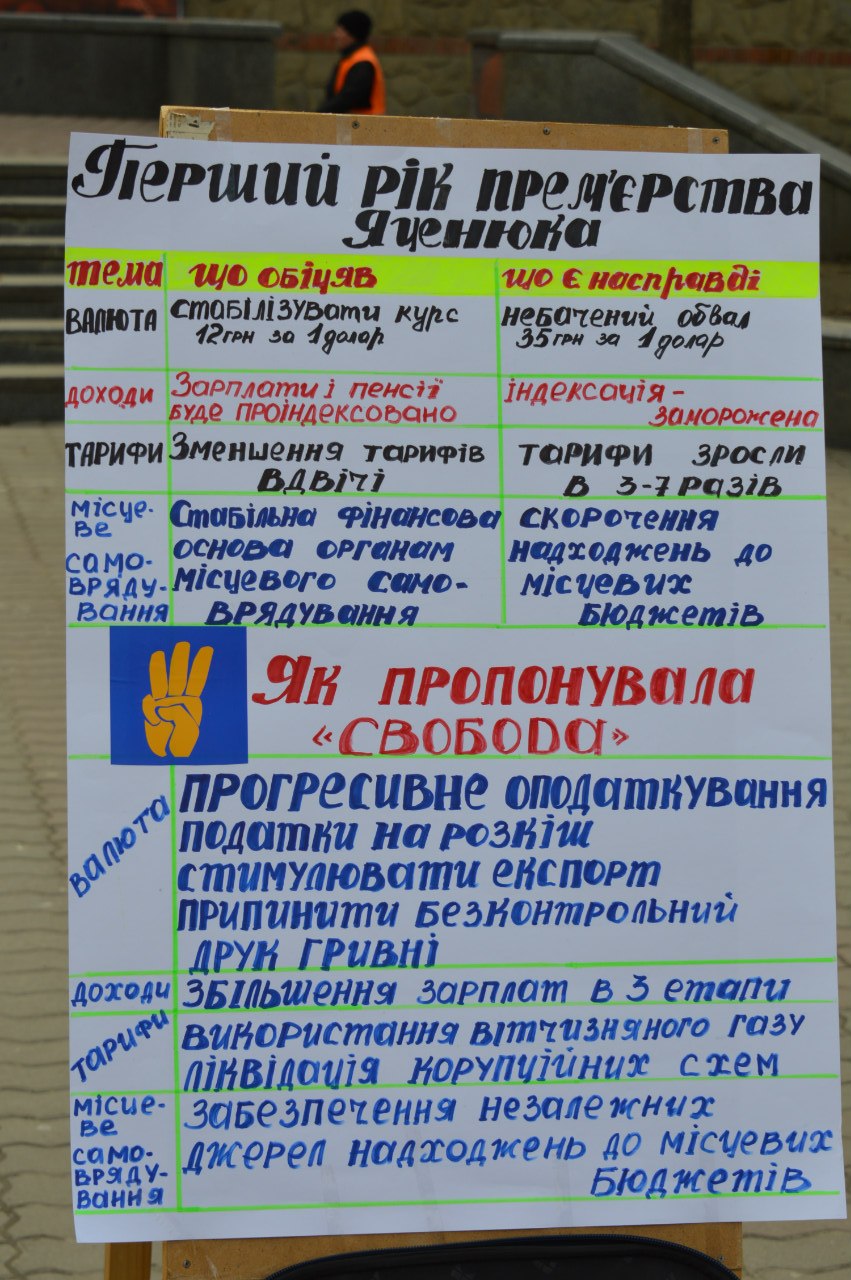 Перший рік прем'єрства
Яценюка
тема що обіцяв що є насправді
ВАЛЮТА стабілізувати курс небачений обвал
12грн за 1 долар 35грн за 1 долар
ДОХОДИ Зарплати і пенсії індексація -
буде проіндексовано заморожена
ТАРИФИ Зменшення тарифів тарифи зросли
вдвічі в 3-7 разів
місце- Стабільна фінансова скорочення
ве основа органам надходжень до
само- місцевого само- місцевих
вряду- врядування бюджетів
вання
Як пропонувала
«СВОБОДА»
валюта прогресивне оподаткування
податки на розкіш
стимулювати експорт
припинити безконтрольний
друк гривні
доходи збільшення зарплат в 3 етапи
тарифи використання вітчизняного газу
ліквідація корупційних схем
місце- забезпечення незалежних
ве джерел надходжень до місцевих
само- бюджетів
вряду-
вання